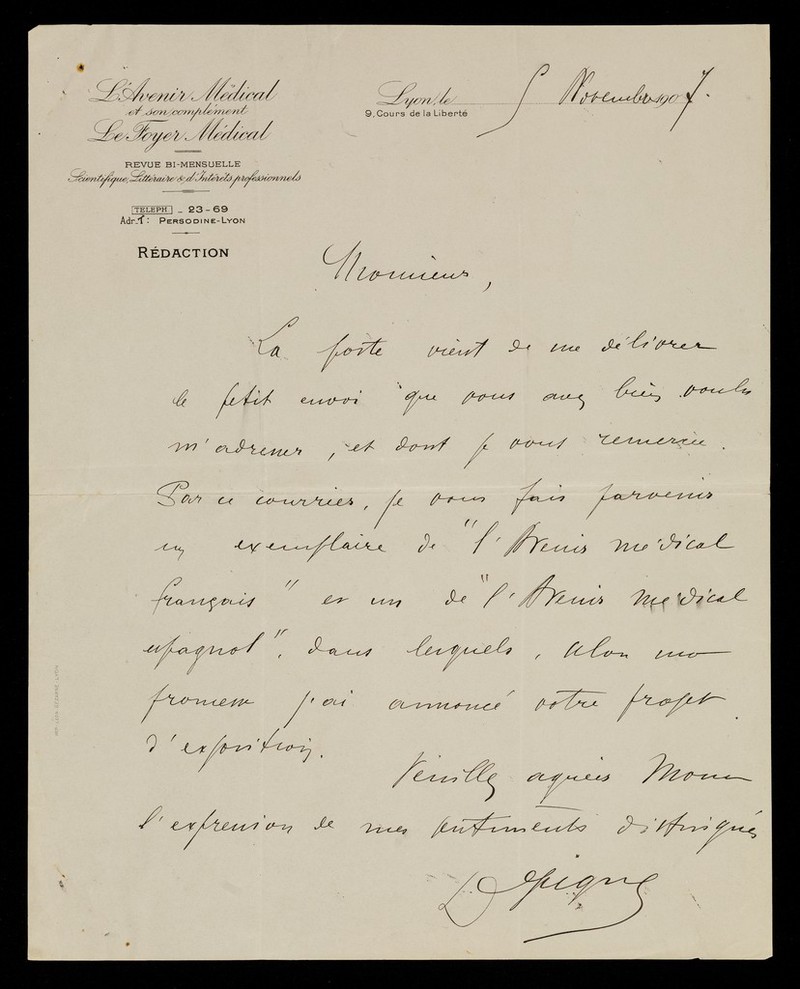 L'Avenir Médical
et son complément
Le Foyer Médical
REVUE BI-MENSUELLE
Scientifique, Littéraire & d'Intérêts professionnels
TELEPH. _ 23-69
Adr.T: PERSODINE-LYON
RÉDACTION
Lyon, le 5 Novembre 1907.
9, Cours de la Liberté
Monsieur,
La poste vient de me délivrer
le petit envoi que vous avez bien voulu
m'adresser, et dont je vous remercie.
Par ce courrier, je vous fais parvenir
un exemplaire de "l'Avenir médical
français" et un de "l'Avenir médical
espagnol", dans lesquels, selon ma
promesse j'ai annoncé votre projet
d'exposition.
Veuillez agréer Monsieur
l'expression de mes sentiments distingués